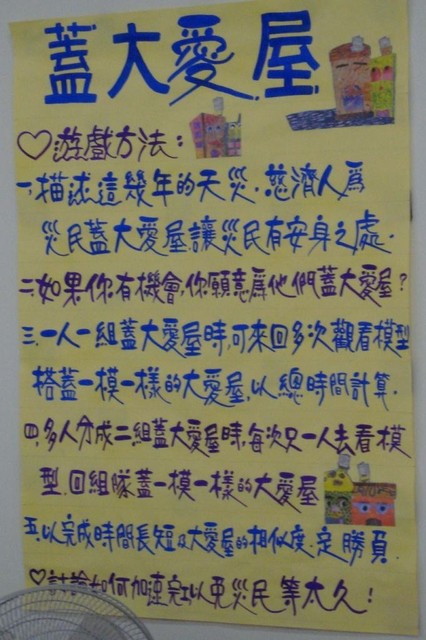 蓋大愛屋
♡遊戲方法：
一.描述這幾年的天災，慈濟人為
災民蓋大愛屋，讓災民有安身之處。
二.如果你有機會，你願意為他們蓋大愛屋？
三.一人一組蓋大愛屋時，可來回多次觀看模型
搭蓋一模一樣的大愛屋，以總時間計算。
四.多人分成二組蓋大愛屋時，每次只一人去看模
型，回組隊蓋一模一樣的大愛屋
五.以完成時間長短及大愛屋的相似度，定勝負。
♡討論如何加速完工以免災民等太久！